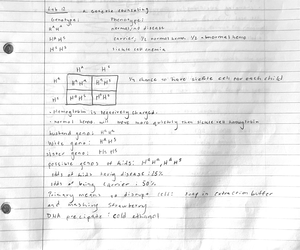 Lab 2
Genotype: Phenotype:
Hᴬ Hᴬ normal, no disease
Hᴬ Hˢ carrier, 1/2 normal hemo 1/2 abnormal hemo
Hˢ Hˢ sickle cell anemia
Hᴬ Hˢ
Hᴬ Hᴬ Hᴬ Hᴬ Hˢ
Hˢ Hᴬ Hˢ Hˢ Hˢ
1/4 chance to have sickle cell for each child
- Hemoglobin is negatively charged.
- normal hemo. will move more quickly than sickle cell hemoglobin
husband geno:
wife's geno: Hᴬ Hˢ
sister geno: Hˢ Hˢ
possible genos of kids: Hᴬ Hᴬ, Hᴬ Hˢ
odds of kids having disease:
odds of being carrier: 50%
Primary means to disrupt cells: soap in extraction buffer
and mashing strawberry
DNA precipitate: cold ethanol